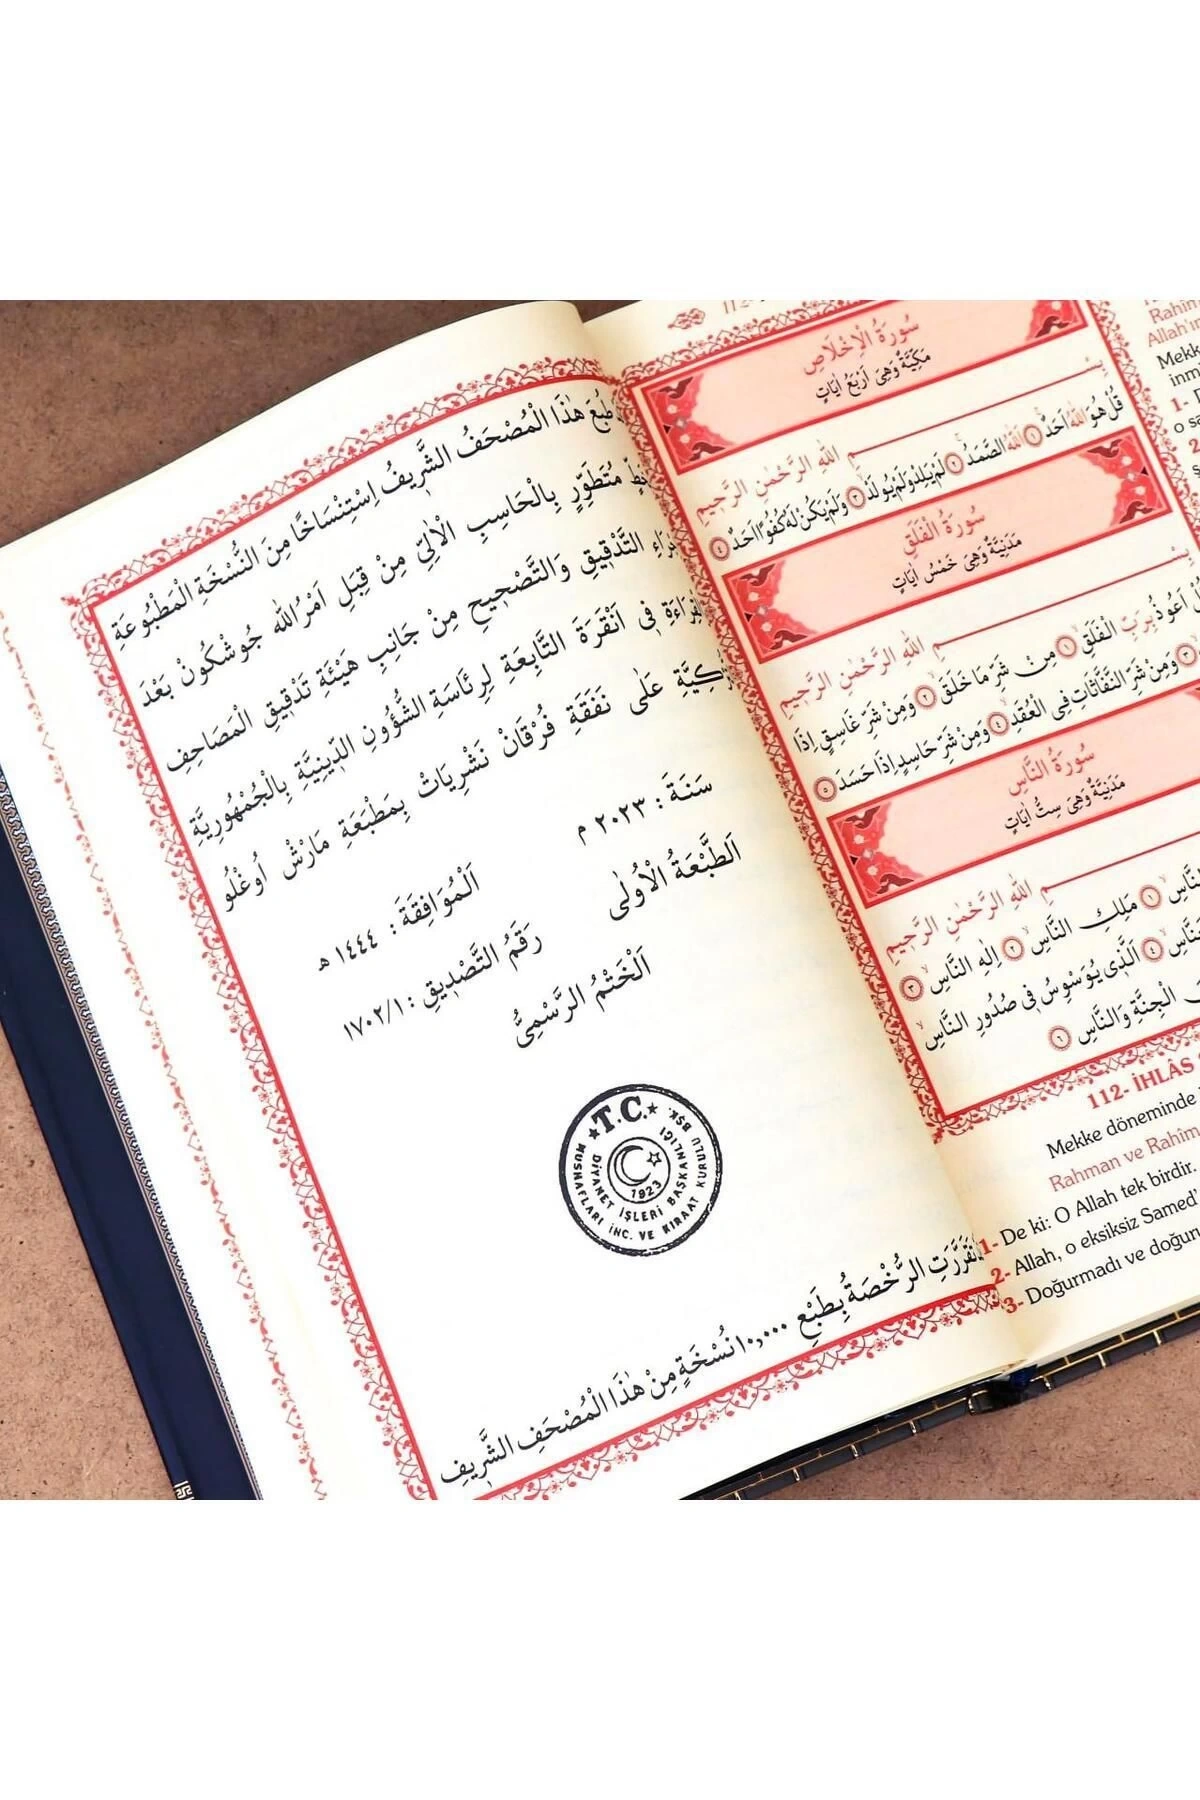 طُبِعَ هٰذَا الْمُصْحَفُ الشَّرِيفُ اِسْتِنْسَاخًا مِنَ النُّسْخَةِ الْمَطْبُوعَةِ
مُتَطَوِّرٍ بِالْحَاسِبِ الْاٰلِيِّ مِنْ قِبَلِ اَمْرُ اللّٰه جُوشْكُونْ بَعْدَ
التَّدْقِيقِ وَالتَّصْحِيحِ مِنْ جَانِبِ هَيْئَةِ تَدْقِيقِ الْمَصَاحِفِ
فِي اَنْقَرَةَ التَّابِعَةِ لِرِئَاسَةِ الشُّؤُونِ الدِّينِيَّةِ بِالْجُمْهُورِيَّةِ
عَلٰى نَفَقَةِ فُرْقَانْ نَشْرِيَاتْ بِمَطْبَعَةِ مَارْشْ اُوغْلُو
سَنَةَ : ٢٠٢٣ م
اَلْمُوَافِقَةَ : ١٤٤٤ هـ
اَلطَّبْعَةُ الْاُولٰى
رَقَمُ التَّصْدِيقِ : ١٧٠٢/١
اَلْخَتْمُ الرَّسْمِيُّ
T.C.
DİYANET İŞLERİ BAŞKANLIĞI
MUSHAFLARI İNC. VE KIRAAT KURULU BŞK.
1923
تَقَرَّرَتِ الرُّخْصَةُ بِطَبْعِ ١٠,٠٠٠ نُسْخَةٍ مِنْ هٰذَا الْمُصْحَفِ الشَّرِيفِ
سُورَةُ الْاِخْلَاصِ
مَكِّيَّةٌ وَهِيَ اَرْبَعُ اٰيَاتٍ
بِسْمِ اللّٰهِ الرَّحْمٰنِ الرَّحِيمِ
قُلْ هُوَ اللّٰهُ اَحَدٌ ١ اَللّٰهُ الصَّمَدُ ٢ لَمْ يَلِدْ وَلَمْ يُولَدْ ٣ وَلَمْ يَكُنْ لَهُ كُفُوًا اَحَدٌ ٤
سُورَةُ الْفَلَقِ
مَدَنِيَّةٌ وَهِيَ خَمْسُ اٰيَاتٍ
بِسْمِ اللّٰهِ الرَّحْمٰنِ الرَّحِيمِ
اَعُوذُ بِرَبِّ الْفَلَقِ ١ مِنْ شَرِّ مَا خَلَقَ ٢ وَمِنْ شَرِّ غَاسِقٍ اِذَا
٣ وَمِنْ شَرِّ النَّفَّاثَاتِ فِي الْعُقَدِ ٤ وَمِنْ شَرِّ حَاسِدٍ اِذَا حَسَدَ ٥
سُورَةُ النَّاسِ
مَدَنِيَّةٌ وَهِيَ سِتُّ اٰيَاتٍ
اللّٰهِ الرَّحْمٰنِ الرَّحِيمِ
النَّاسِ ١ مَلِكِ النَّاسِ ٢ اِلٰهِ النَّاسِ ٣
٤ اَلَّذِي يُوَسْوِسُ فِي صُدُورِ النَّاسِ
الْجِنَّةِ وَالنَّاسِ ٦
112- İHLÂS
Mekke döneminde
Rahman ve Rahîm
1- De ki: O Allah tek birdir.
2- Allah, o eksiksiz Samed'
3- Doğurmadı ve doğun
Rahîm
Allah'ın
Mekk
inmi
1-
o sa
2-